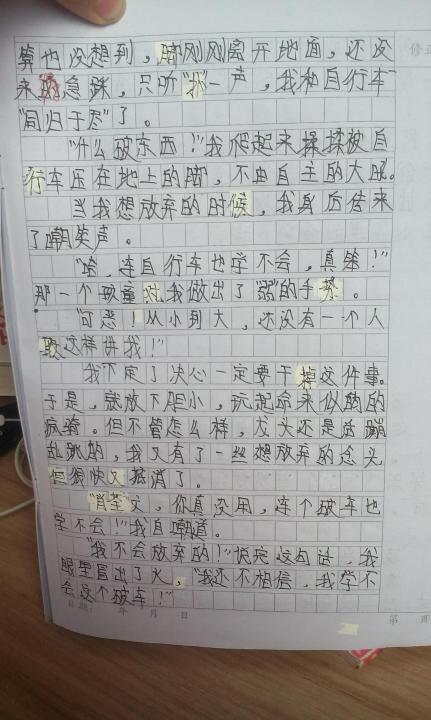 算也没想到，脚刚刚离开地面，还没
来的急踩，只听“扑”一声，我和自行车
“同归于尽”了。
“什么破东西！”我爬起来揉揉被自
行车压在地上的脚，不由自主的大吼。
当我想放弃的时候，我身后传来
了嘲笑声。
“哈，连自行车也学不会，真笨！”
那一个破童对我做出了“弱”的手势。
“可恶！从小到大，还没有一个人
敢这样讲我！”
我下定了决心一定要干掉这件事。
于是，就放下胆小，玩起命来似的的
疯骑。但不管怎么样，龙头还是活蹦
乱跳的，我又有了一丝想放弃的念头
但很快又打消了。
“肖荃文，你真没用，连个破车也
学不会！”我自嘲道。
“我不会放弃的！”说完这句话，我
眼里冒出了火，“我还不相信，我学不
会这个破车！”
日期： 年 月 日
第 页